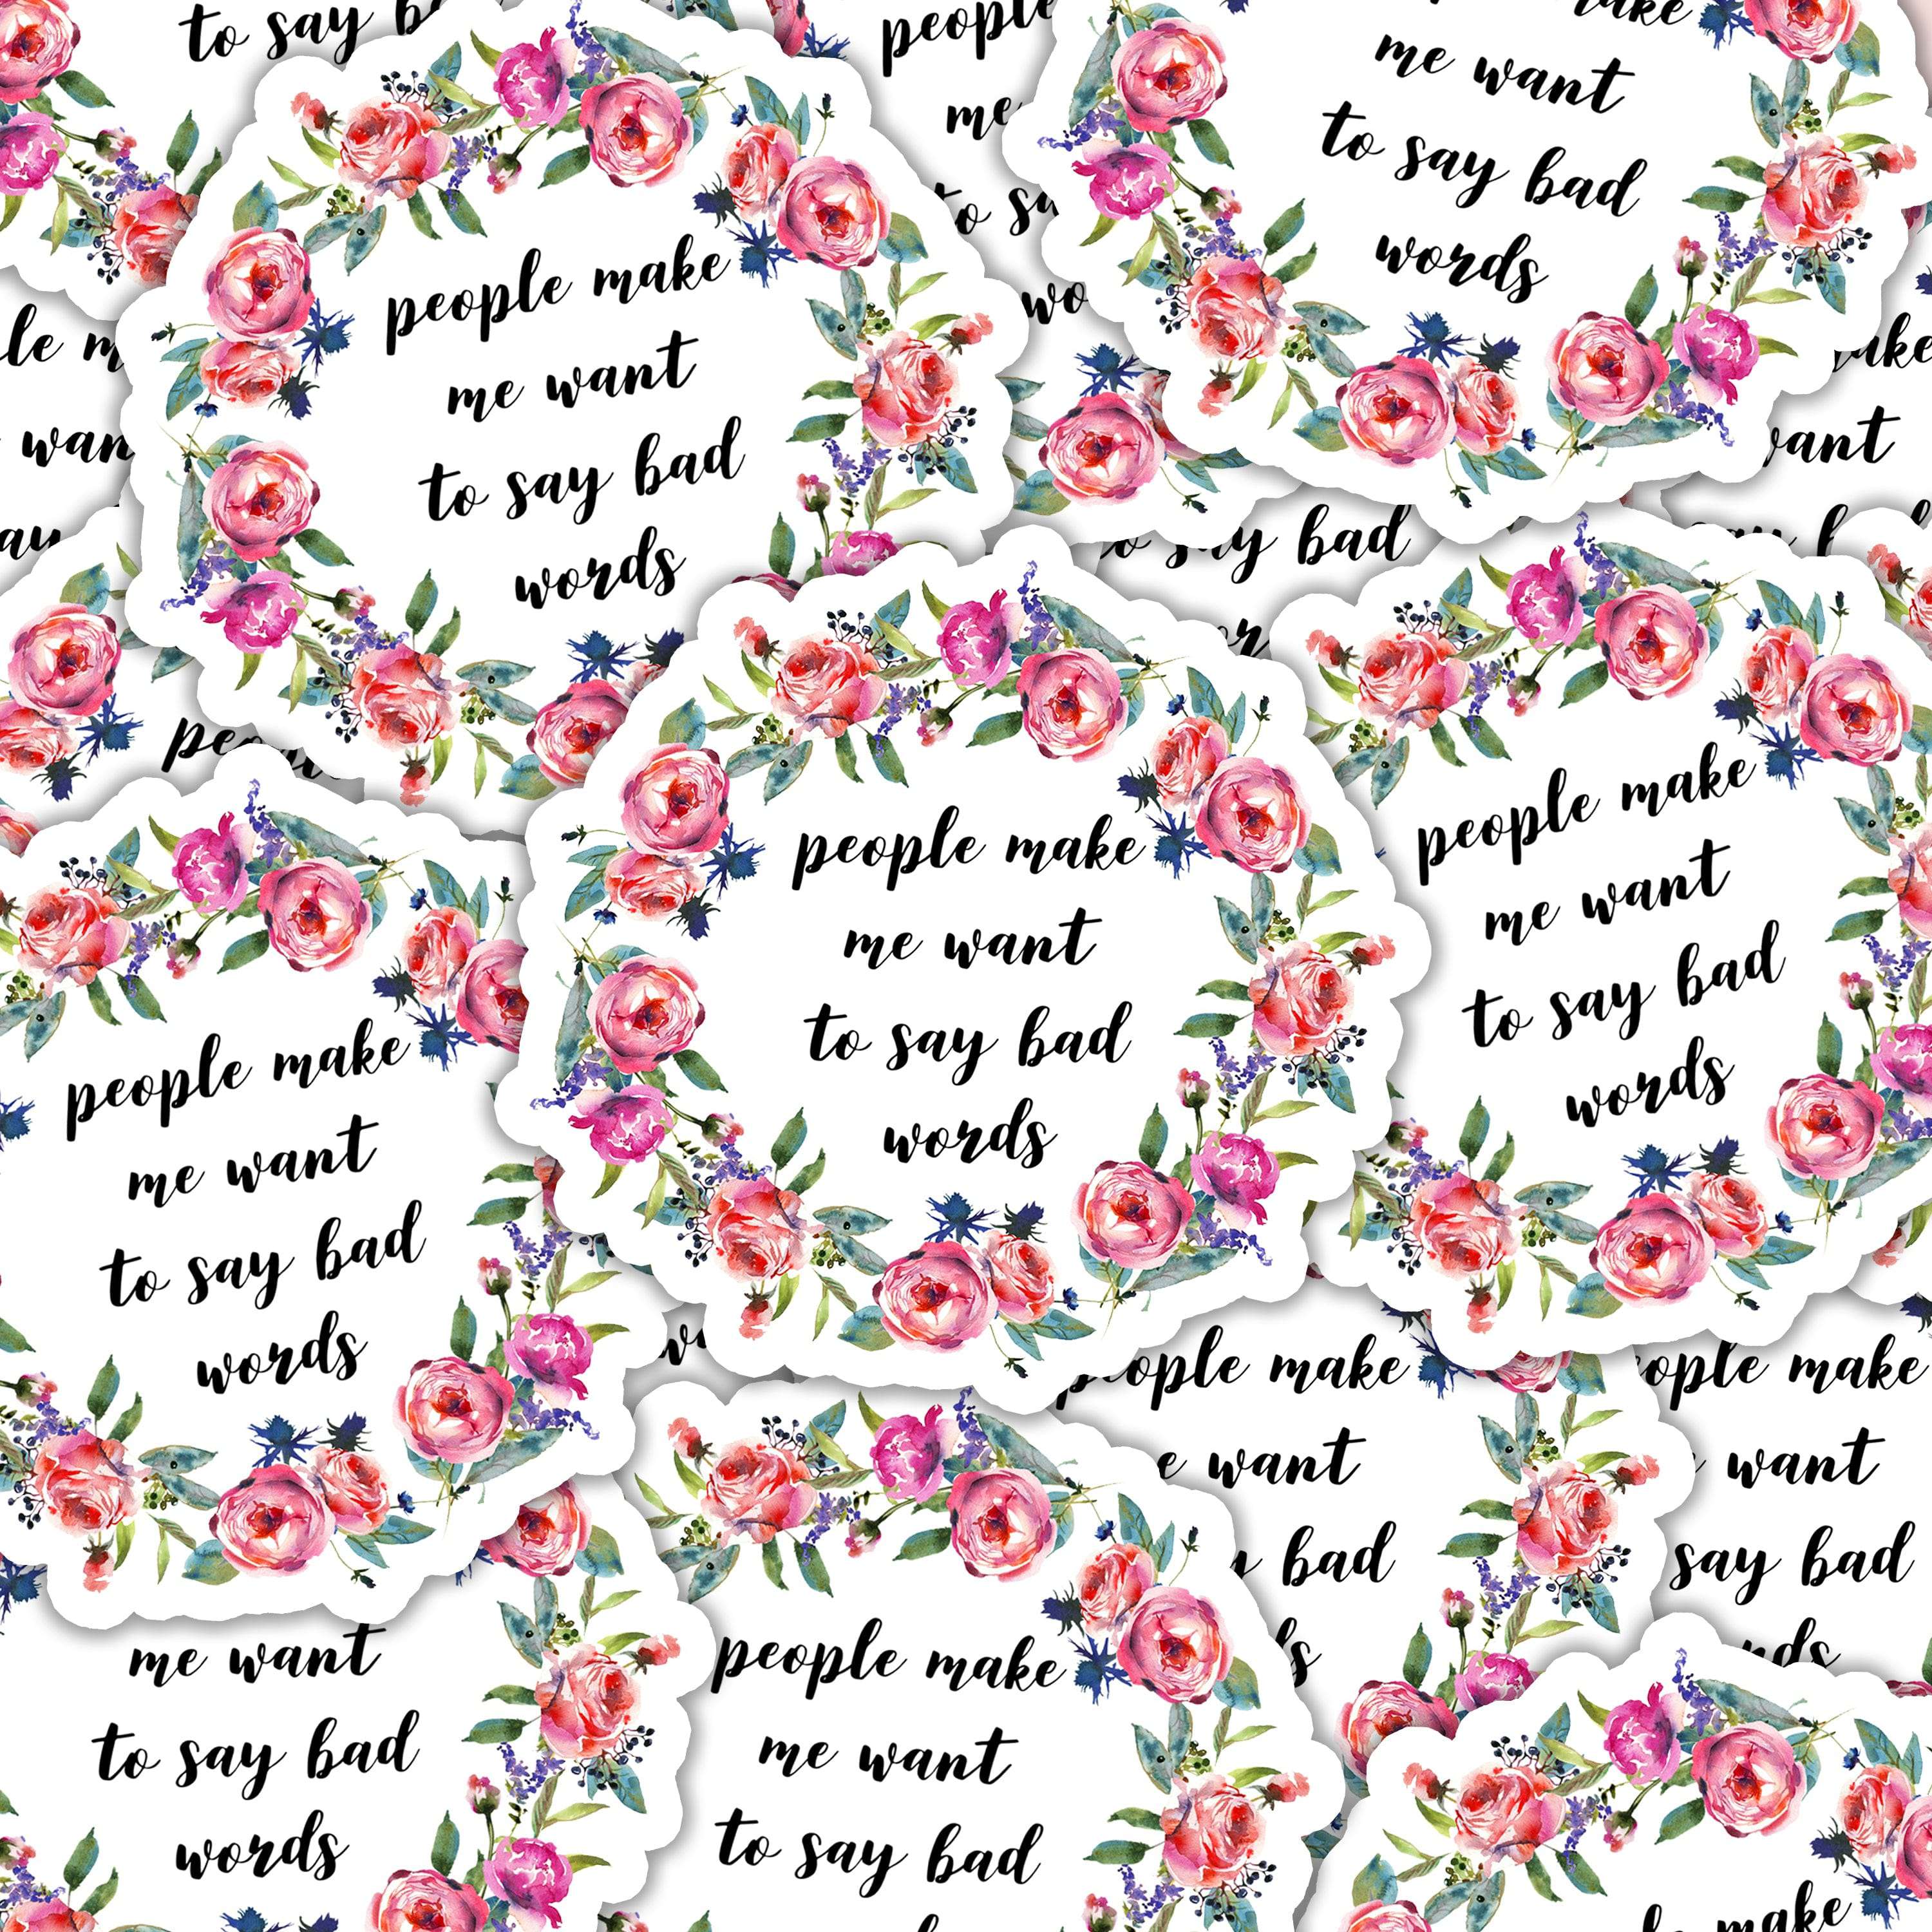 to say
people
me
to
wo
make
me want
to say bad
words
people make
me want
to say bad
words
make
want
say bad
people make
me want
to say bad
words
people make
me want
to say bad
words
people make
me want
to say bad
words
people make
want
bad
people make
want
say bad
me want
to say bad
words
people make
me want
to say bad
make